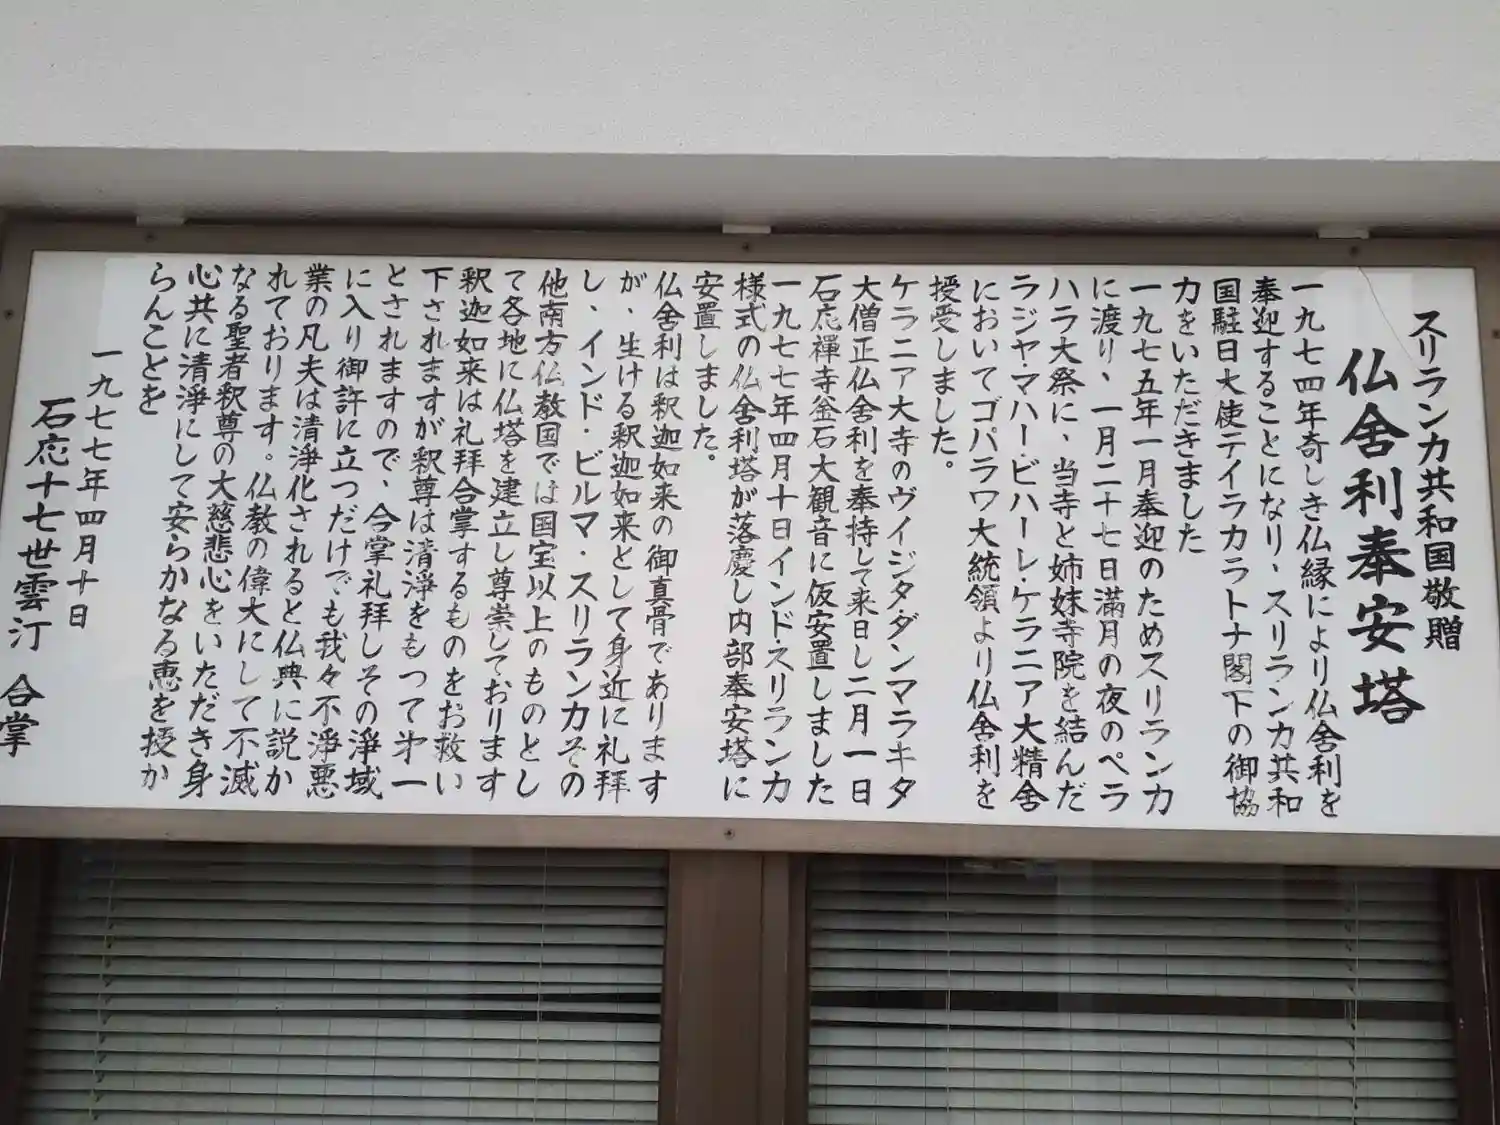 スリランカ共和国敬贈
仏舎利奉安塔
一九七四年奇しき仏縁により仏舎利を
奉迎することになり、スリランカ共和
国駐日大使テイラカラトナ閣下の御協
力をいただきました
一九七五年一月奉迎のためスリランカ
に渡り、一月二十七日満月の夜のペラ
ハラ大祭に、当寺と姉妹寺院を結んだ
ラジヤ・マハー・ビハーレ・ケラニア大精舎
においてゴパラワ大統領より仏舎利を
授受しました。
ケラニア大寺のヴイジタ・ダンマラキタ
大僧正仏舎利を奉持して来日し二月一日
石応禅寺釜石大観音に仮安置しました
一九七七年四月十日インド・スリランカ
様式の仏舎利塔が落慶し内部奉安塔に
安置しました。
仏舎利は釈迦如来の御真骨であります
が、生ける釈迦如来として身近に礼拝
し、インド・ビルマ・スリランカその
他南方仏教国では国宝以上のものとし
て各地に仏塔を建立し尊崇しております
釈迦如来は礼拝合掌するものをお救い
下されますが釈尊は清淨をもつて才一
とされますので、合掌礼拝しその淨域
に入り御許に立つだけでも我々不淨悪
業の凡夫は清淨化されると仏典に説か
れております。仏教の偉大にして不滅
なる聖者釈尊の大慈悲心をいただき身
心共に清淨にして安らかなる恵を授か
らんことを
一九七七年四月十日
石応十七世雲汀 合掌